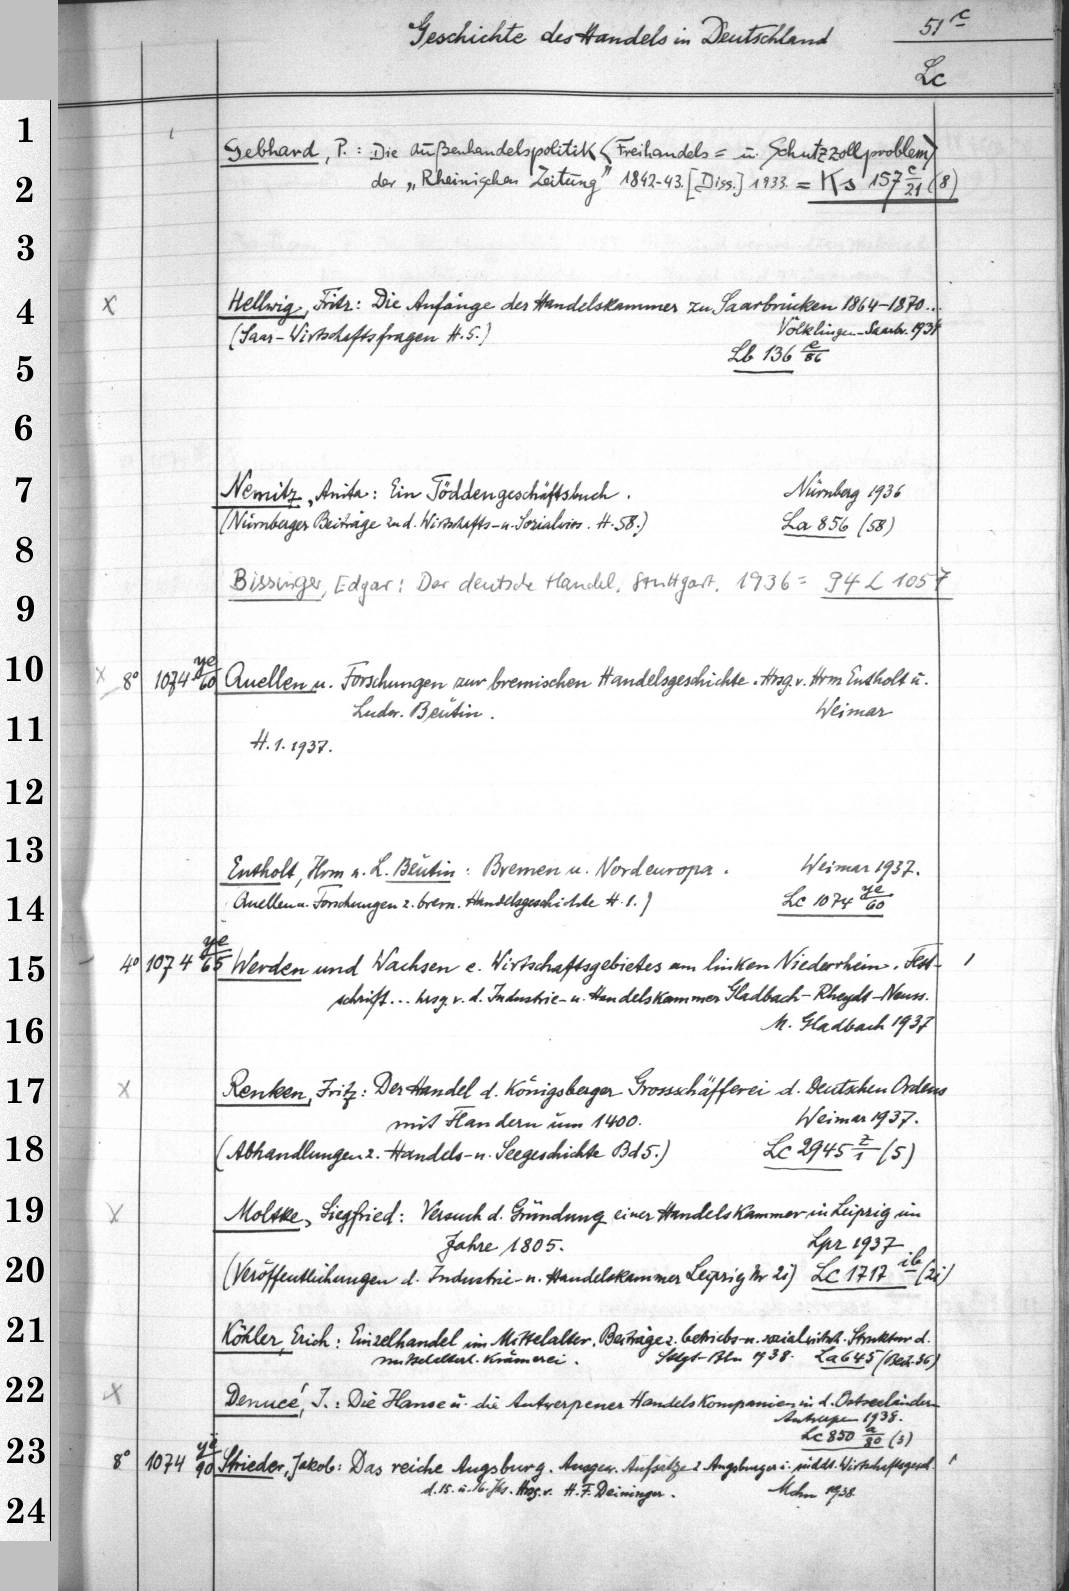 Geschichte des Handels in Deutschland 51 c
Lc
1
Gebhard, P.: Die Außenhandelspolitik (Freihandels= u. Schutzzollproblem)
2
der „Rheinischen Zeitung" 1842-43. [Diss.] 1933. = Ks 157 c/21 (8)
3
4
x Hellwig, Fritz: Die Anfänge der Handelskammer zu Saarbrücken 1864-1870...
(Saar-Wirtschaftsfragen H.5.) Völklingen-Saarbr. 1934
5
Lb 136 e/86
6
7
Nemitz, Anita: Ein Töddengeschäftsbuch. Nürnberg 1936
(Nürnberger Beiträge zu d. Wirtschafts- u. Sozialwiss. H. 58.) La 856 (58)
8
9
Bissinger, Edgar: Der deutsche Handel. Stuttgart. 1936 = 94 L 1057
10
x 8° 1074 ye/60 Quellen u. Forschungen zur bremischen Handelsgeschichte. Hrsg. v. Hrm Entholt u.
11
Ludw. Beutin. Weimar
H. 1. 1937.
12
13
Entholt, Hrm u. L. Beutin: Bremen u. Nordeuropa. Weimar 1937.
14
(Quellen u. Forschungen z. brem. Handelsgeschichte H. 1.) Lc 1074 ye/60
15
4° 1074 ye/65 Werden und Wachsen e. Wirtschaftsgebietes am linken Niederrhein. Fest-
schrift... hrsg. v. d. Industrie- u. Handelskammer Gladbach-Rheydt-Neuss.
16
M. Gladbach 1937
17
x Renken, Fritz: Der Handel d. Königsberger Grossschäfferei d. Deutschen Ordens
mit Flandern um 1400. Weimar 1937.
18
(Abhandlungen z. Handels- u. Seegeschichte Bd 5.) Lc 2945 z/1 (5)
19
x Moltke, Siegfried: Versuch d. Gründung einer Handelskammer in Leipzig im
Jahre 1805. Lpz 1937
20
(Veröffentlichungen d. Industrie- u. Handelskammer Leipzig Nr 2i) Lc 1717 ib (2i)
21
Köhler, Erich: Einzelhandel im Mittelalter. Beiträge z. betriebs- u. sozialwirtsch. Struktur d.
mittelalterl. Krämerei. Sttgt-Bln 1938. La 645 (Beih. 36)
22
x Denucé, J.: Die Hanse u. die Antwerpener Handelskompanien in d. Ostseeländern
Antwerpen 1938.
Lc 850 a/80 (3)
23
8° 1074 ye/90 Strieder, Jakob: Das reiche Augsburg. Ausgew. Aufsätze z. Augsburger u. südd. Wirtschaftsgesch.
d. 15. u. 16. Jhs. Hrsg. v. H. F. Deininger. Mchn 1938.
24